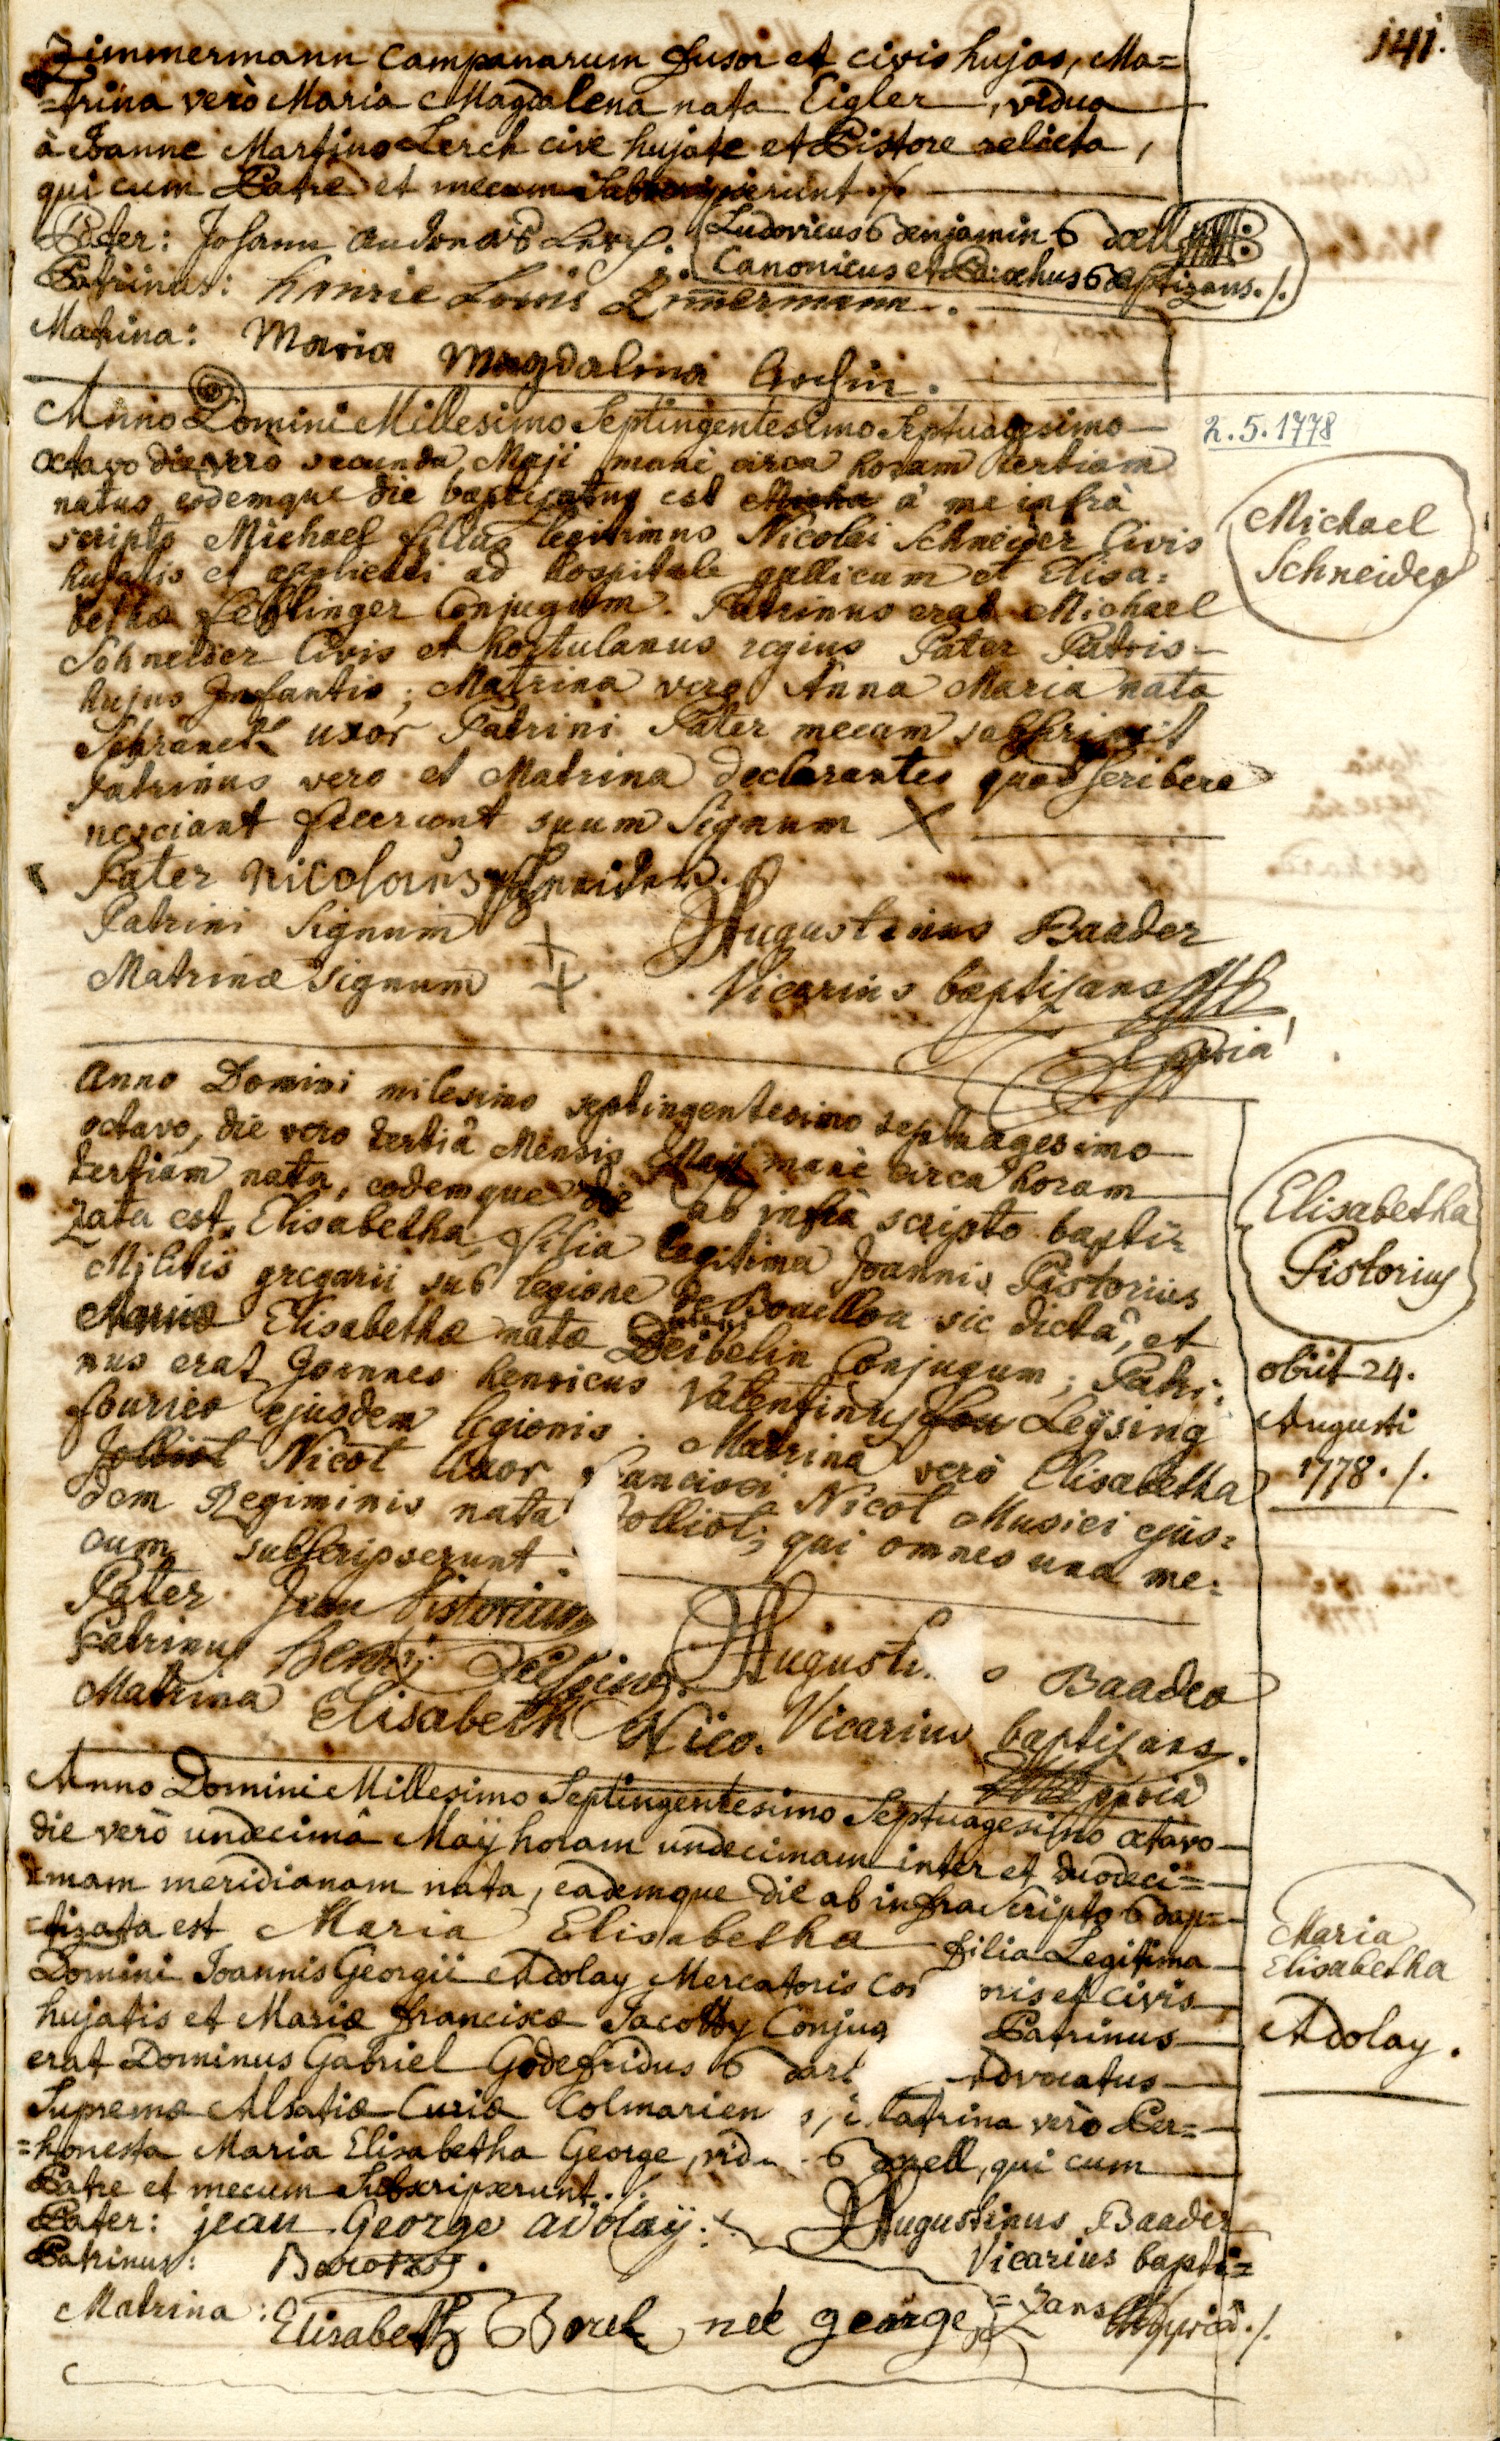 141.
Zimmermann Campanarum fusor et civis hujas, Ma=
=trina verò Maria Magdalena nata Eigler, vidua
à Joanne Martino Lerch cive hujate et Pistore relicta,
qui cum Patre et mecum Subscripserunt ./.
Pater: Johann Andreas Lerch. Ludovicus Benjamin Doell
Patrinus: Henrie Louis Zimmermann. Canonicus et Parochus Baptizans ./.
Matrina: Maria Magdalena
Anno Domini Millesimo Septingentesimo Septuagesimo
octavo die verò secunda Maji manè circa horam tertiam
natus eodemque die baptizatus est à me infrà
scripto Michael filius legitimus Nicolai Schneider Civis
hujatis et ad hospitale gallicum et Elisa=
betha Leblinger Conjugum. Patrinus erat Michael
Schneider Civis et hortulanus regius Pater Patris
hujus Infantis; Matrina vero Anna Maria nata
Schranck uxor Patrini Pater mecum subscripsit
Patrinus vero et Matrina declarantes quod scribere
nesciant fecerunt suum Signum X
Pater Nicolaus Schneider.
Patrini Signum + Augustinus Baader
Matrinæ Signum + Vicarius baptizans
ppria
2.5.1778
Michael
Schneider
Anno Domini milesimo septingentesimo septuagesimo
octavo, die vero tertiâ Mensis Maji manè circa horam
tertiam nata, eodemque die ab infrà scripto bapti=
zata est Elisabetha, filia legitima Joannis Pistorius
Militis gregarii sub legione de Bouillon sic dictâ, et
Mariæ Elisabethæ natæ Deibelin Conjugum; Patri=
nus erat Joannes henricus Valentinus Leÿsing
fourier ejusdem legionis. Matrina verò Elisabetha
Jolliot Nicot Uxor Francisci Nicot Musici ejus=
dem Regiminis nata Jolliot; qui omnes una me=
cum subscripserunt.
Pater Jean Pistorius
Patrinus Henri Augusti s Baader
Matrina Elisabeth Nico. Vicarius baptizans.
ppriâ
Elisabetha
Pistorius
obiit 24.
Augusti
1778./.
Anno Domini Millesimo Septingentesimo Septuagesimo octavo
die verò undecimâ Maÿ horam undecimam inter et duodeci=
=mam meridianam nata, eademque die ab infra scripto bap=
=tizata est Maria Elisabetha filia Legitima
Domini Joannis Georgii Adolay Mercatoris Co oris et civis
hujatis et Mariæ franciscæ Jacotty Conjug Patrinus
erat Dominus Gabriel Godefridus Bar Advocatus
Supremæ Alsatiæ Curiæ Colmarien s, Matrina verò Per=
=honesta Maria Elisabetha George, vid Borell, qui cum
Patre et mecum Subscripserunt ./.
Pater: jean George adolaÿ. Augustinus Baader
Patrinus: Vicarius bapti=
Matrina: Elisabeth Borel née george =zans ppriâ./.
Maria
Elisabetha
Adolay.